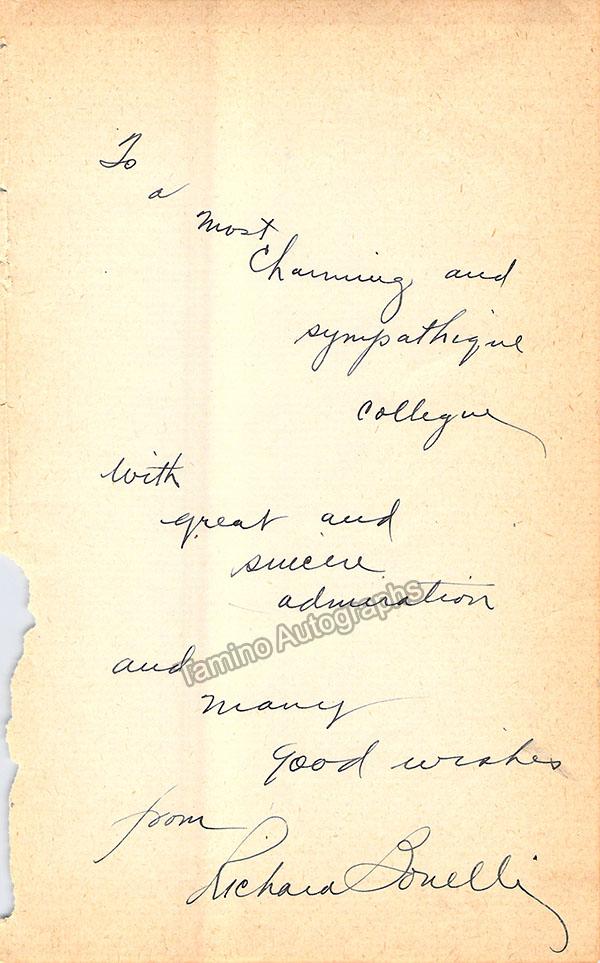 To
a
most
Charming and
sympathique
collegue
with
great and
sincere
admiration
Tamino Autographs
and
many
good wishes
from
Richard Bonelli